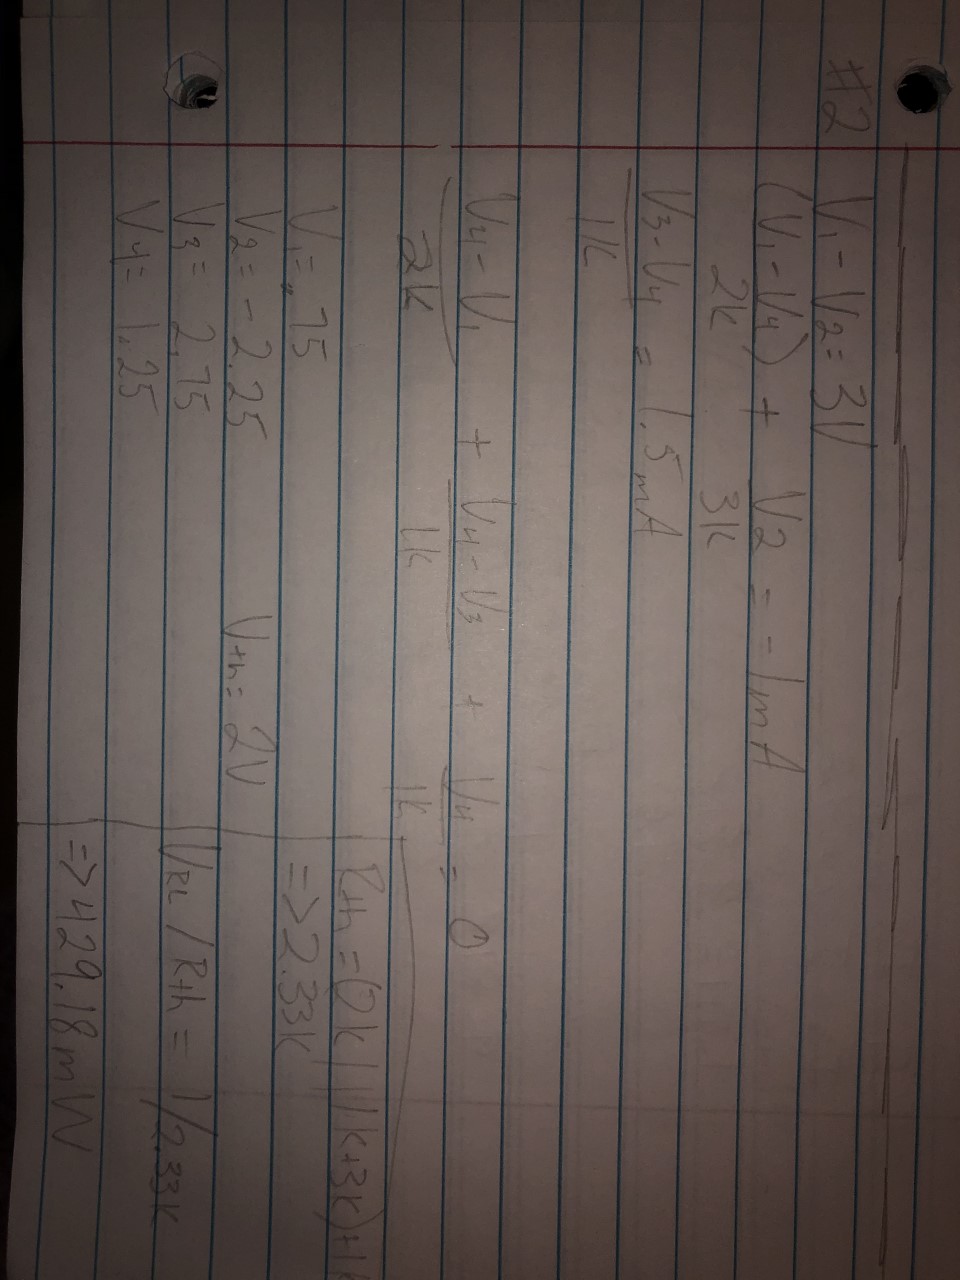 #2 V₁ - V₂ = 3V
(V₁ - V₄)/2k + V2/3k = -1mA
V₃ - V₄/1k = 1.5mA
V₄ - V₁/2k + V₄ - V₃/1k + V₄/1k = 0
V₁ = .75
V₂ = -2.25
V₃ = 2.75
V₄ = 1.25
Vth = 2V
Rth = (2k||1k+3k)+1k
=> 2.33k
VRL/Rth = 1/2.33k
=> 429.18mW